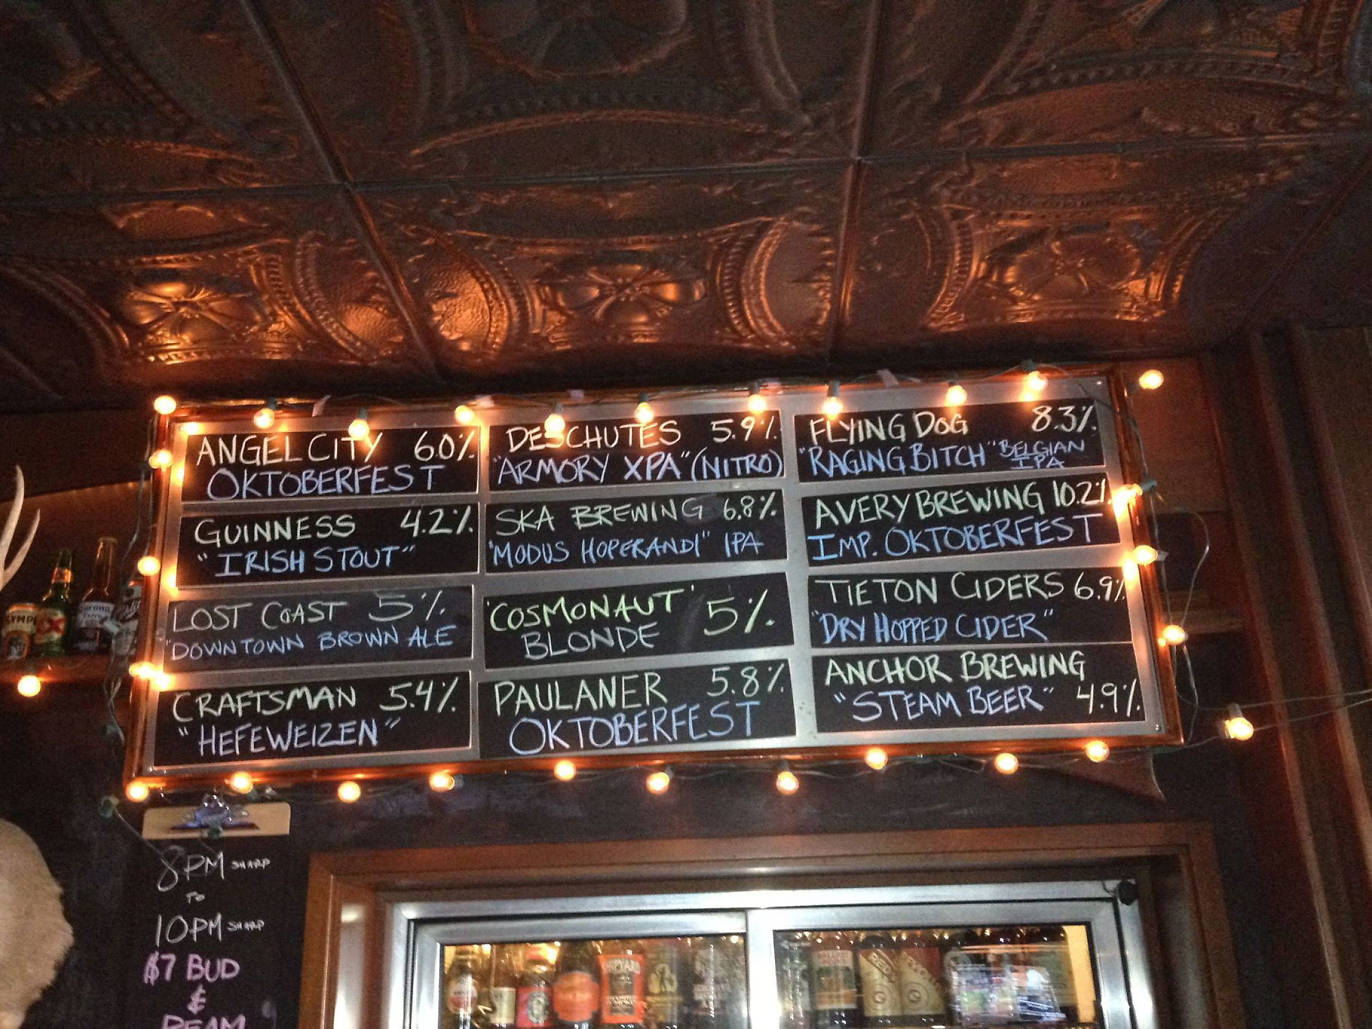 ANGEL CITY 6.0%
OKTOBERFEST
GUINNESS 4.2%
"IRISH STOUT"
LOST COAST 5%
"DOWNTOWN BROWN ALE
CRAFTSMAN 5.4%
"HEFEWEIZEN"
DESCHUTES 5.9%
"ARMORY XPA" (NITRO)
SKA BREWING 6.8%
"MODUS HOPERANDI" IPA
'COSMONAUT' 5%
BLONDE
PAULANER 5.8%
OKTOBERFEST
FLYING DOG 8.3%
"RAGING BITCH" BELGIAN
IPA
AVERY BREWING 10.2%
IMP. OKTOBERFEST
TIETON CIDERS 6.9%
"DRY HOPPED CIDER"
ANCHOR BREWING
"STEAM BEER" 4.9%
8PM SHARP
TO
10PM SHARP
$7 BUD
&
BEAM
Corona